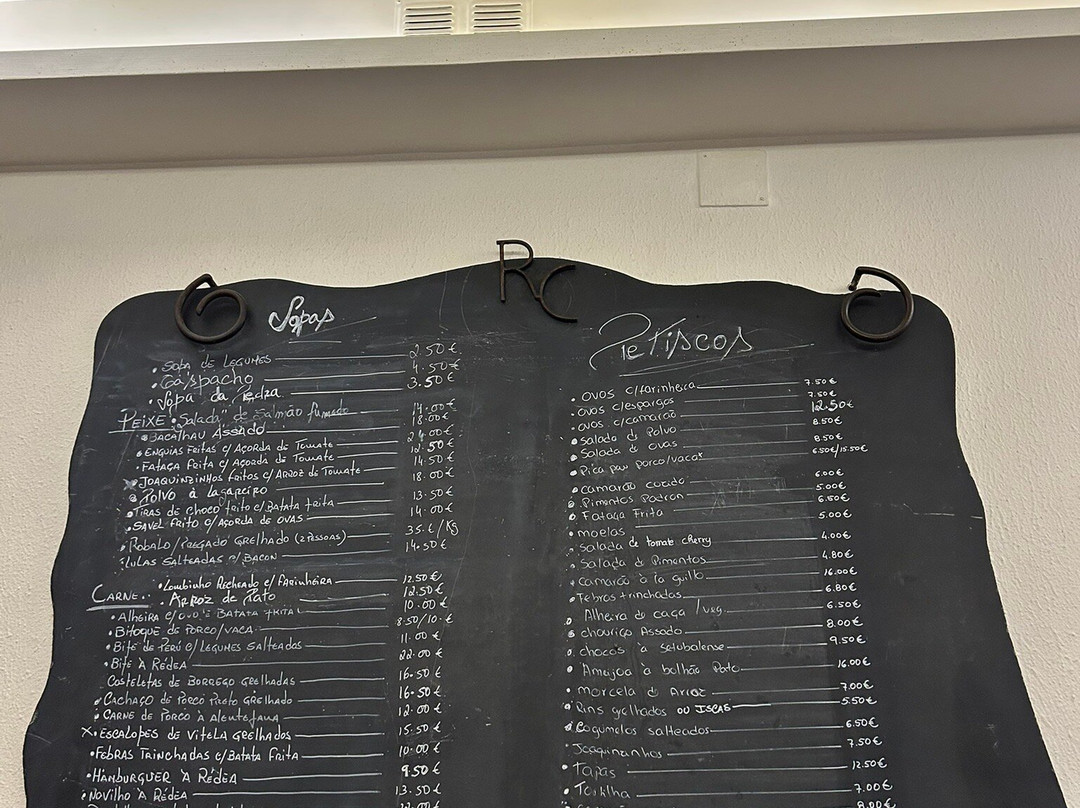 RC
Sopas
• SOPA DE LEGUMES 2.50€
• Gaspacho 4.50€
• Sopa da Pedra 3.50€
PEIXE • Salada de Salmão fumado 14.00€
• BACALHAU ASSADO 18.00€
• ENGUIAS FRITAS C/ AÇORDA DE TOMATE 24.00€
• FATAÇA FRITA C/ AÇORDA DE TOMATE 12.50€
x JOAQUINZINHOS FRITOS C/ ARROZ DE TOMATE 14.50€
• POLVO À LAGAREIRO 18.00€
• TIRAS DE CHOCO FRITO C/ BATATA FRITA 13.50€
• SAVEL FRITO C/ AÇORDA DE OVAS 14.00€
• ROBALO/PREGADO GRELHADO (2 PESSOAS) 35.€/KG
• LULAS SALTEADAS C/ BACON 14.50€
CARNE.. • Lombinho Recheado c/ FARINHEIRA 12.50€
• ARROZ DE PATO 12.50€
• ALHEIRA C/ OVO E BATATA FRITA 10.00€
• BITOQUE DE PORCO/VACA 8.50/10.€
• BIFE DE PERÚ C/ LEGUMES SALTEADOS 11.00€
• BIFE À RÉDEA 22.00€
COSTELETAS DE BORREGO GRELHADAS 16.50€
• CACHAÇO DE PORCO PRETO GRELHADO 16.50€
• CARNE DE PORCO À ALENTEJANA 12.00€
X • ESCALOPES DE VITELA GRELHADOS 15.50€
• FEBRAS TRINCHADAS C/ BATATA FRITA 10.00€
• HAMBURGUER À RÉDEA 9.50€
• NOVILHO À RÉDEA 13.50€
PETISCOS
• OVOS c/farinheira 7.50€
• OVOS c/espargos 7.50€
• OVOS c/camarão 12.50€
• Salada de Polvo 8.50€
• Salada de ovas 8.50€
• Pica pau porco/vaca 6.50€/15.50€
• Camarão cozido 6.00€
• Pimentos Padron 5.00€
• Fataça Frita 6.50€
• moelas 5.00€
• Salada de tomate cherry
• Salada de Pimentos 4.00€
• camarão à la guilho 4.80€
• Febras trinchadas 16.00€
Alheira de caça /veg. 6.80€
• chouriço Assado 6.50€
• chocos à setubalense 8.00€
• Ameijoa à bolhão Pato 9.50€
• morcela de Arroz 16.00€
• Rins grelhados OU ISCAS 7.00€
• Cogumelos salteados 5.50€
• Joaquinzinhos 6.50€
• Tapas 7.50€
• Tortilha 12.50€
7.00€
8.00€